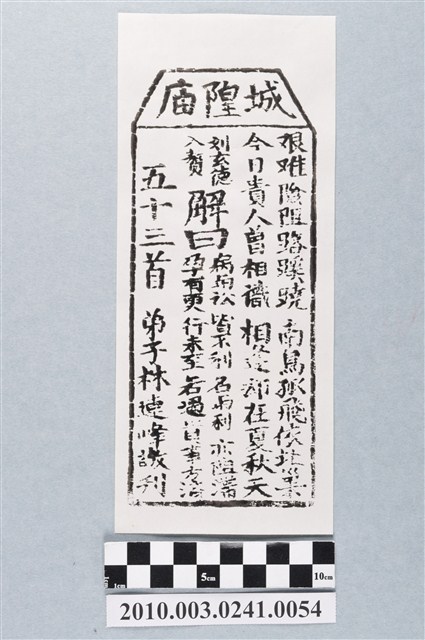 城隍庙
艱难險阻路蹊蹺 南鳥孤飛依北巢
今日貴人曾相識 相逢却在夏秋天
刘玄德
入贅
解曰
病與訟皆不利 名與利亦阻滯
孕有更 行未至 若遇 事方濟
五十三首 弟子林連峰 刊
1cm 5cm 10cm
2010.003.0241.0054